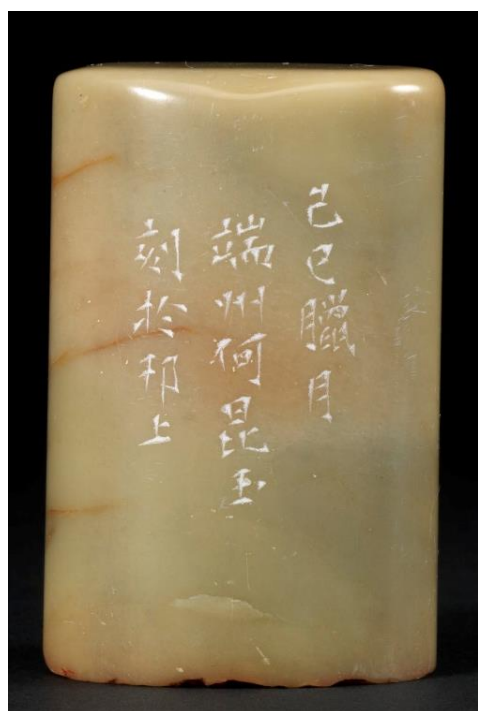 己巳臘月
端州何昆玉
刻於邗上